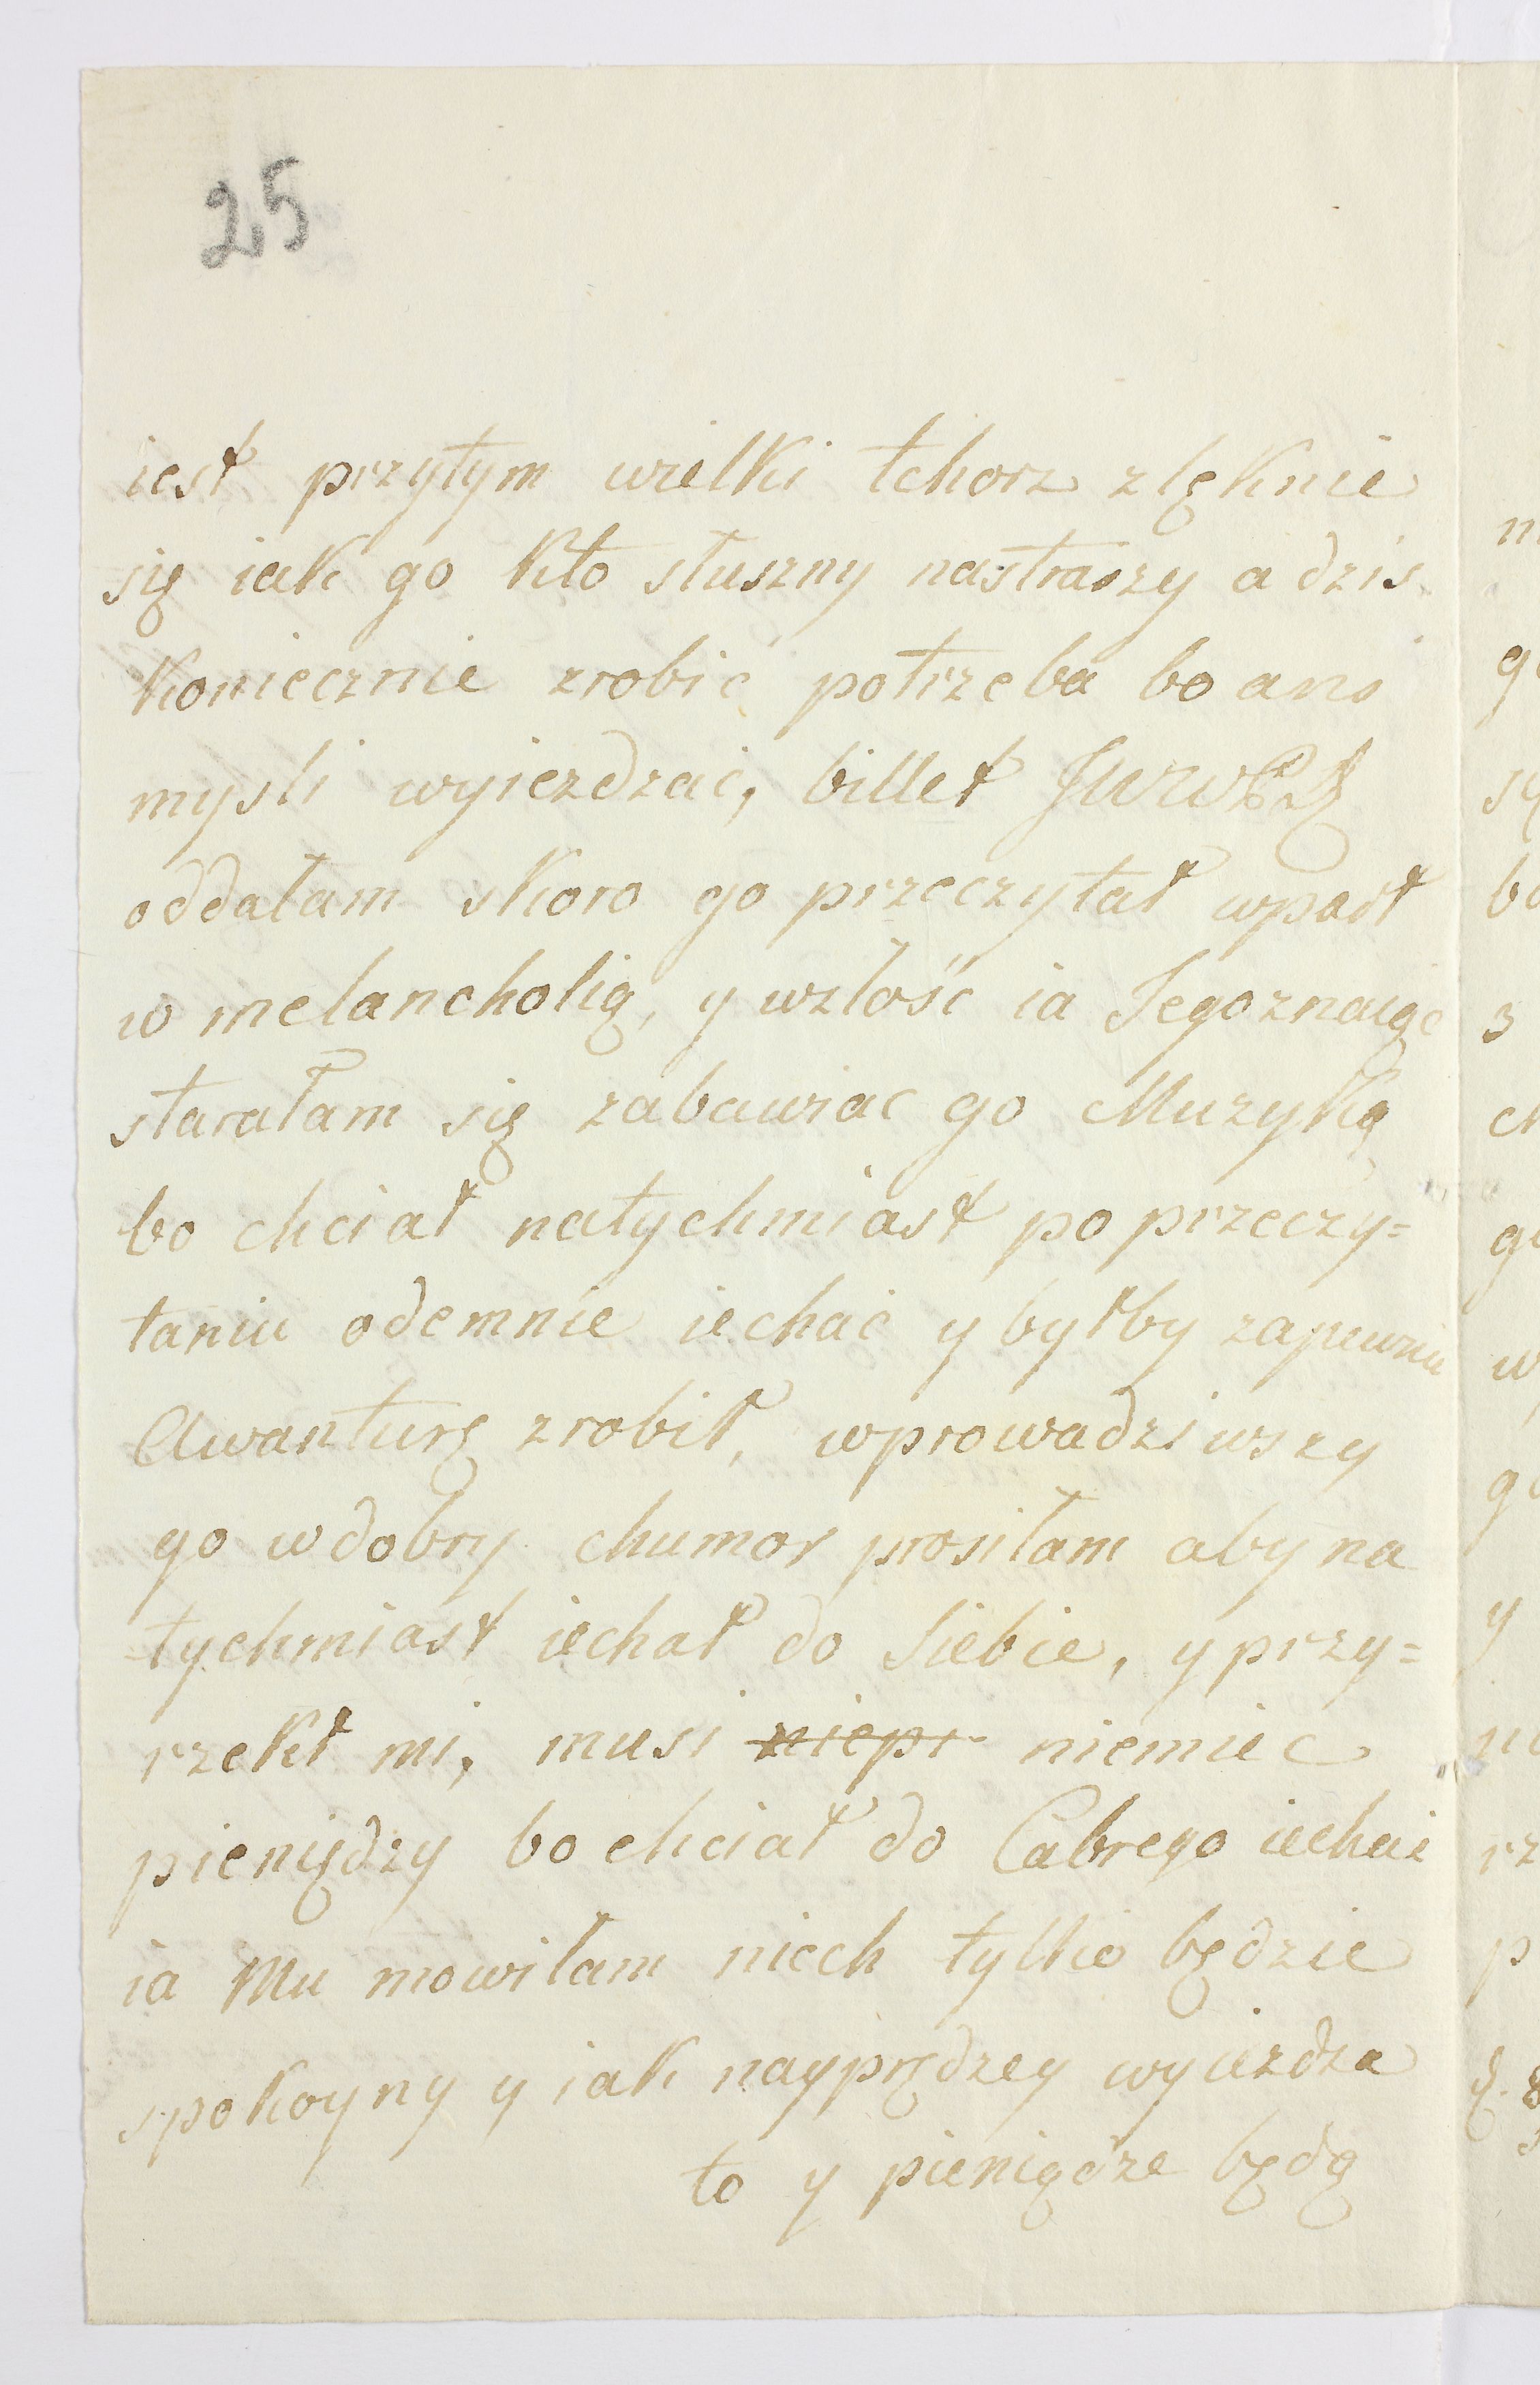 25
iest przytym wielki tchorz zlęknie
się iak go kto słuszny nastraszy a dzis
koniecznie zrobić potrzeba bo ani
mysli wyiezdzać, billet JWWPD
oddałam skoro go przeczytał wpadł
w melancholię, y wzłość ia Jego znaiąc
starałam się zabawiac go Muzyką
bo chciał natychmiast po przeczy=
taniu odemnie iechać y byłby zapewnie
Awanturę zrobił, wprowadziwszy
go w dobry chumor prosiłam aby na
=tychmiast iechał do Siebie, y przy=
rzekł mi, musi niepr niemiec
pieniędzy bo chciał do Cabrego iechać
ia Mu mowiłam niech tylko będzie
spokoyny y iak nayprędzey wyiezdza
to y pieniądze będą